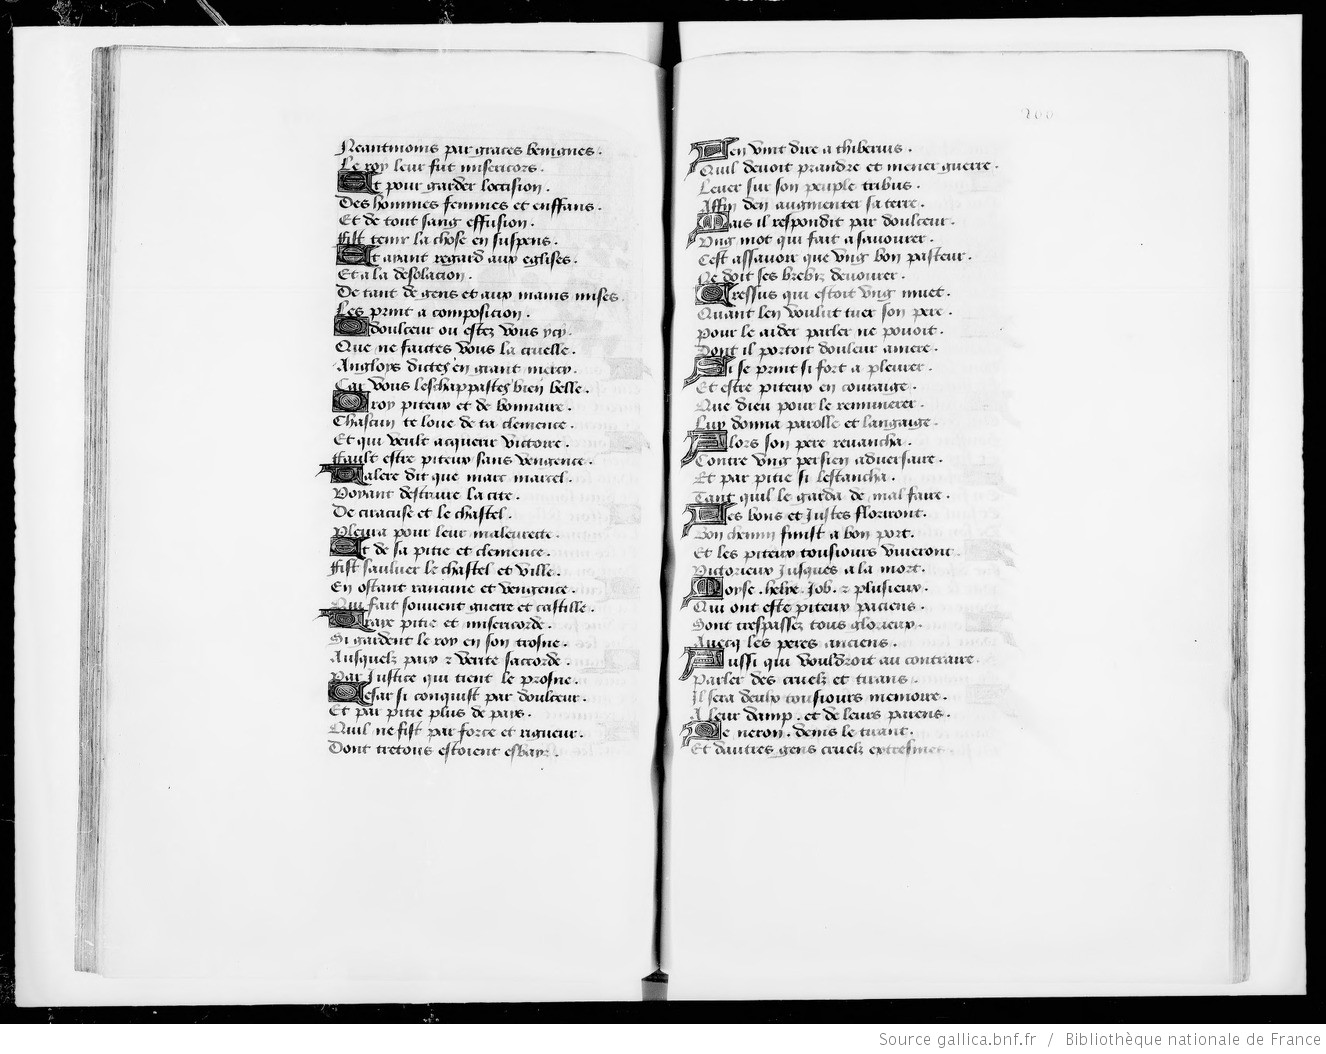 Neantmoins par graces benignes.
Le roy leur fut misericors.
Et pour garder loccision.
Des hommes femmes et enffans.
Et de tout sang effusion.
Fist tenir la chose en suspens.
Et ayant regard aux eglises.
Et a la desolacion.
De tant de gens et aux mains mises.
Les print a composicion.
O doulceur ou estez vous ycy.
Que ne faictes vous la cruelle.
Angloys dictes en grant mercy.
Car vous leschappastes bien belle.
O roy piteux et de bonnaire.
Chascun te loue de ta clemence.
Et qui veult acquerir victoire.
Fault estre piteux sans vengence.
Valere dit que marc marcel.
Voyant destruire la cite.
De ciracuse et le chastel.
Pleura pour leur maleurete.
Et de sa pitie et clemence.
Fist sauluer le chastel et ville.
En ostant rancune et vengence.
Qui fait souvent guerre et castille.
Vraye pitie et misericorde.
Si gardent le roy en son trosne.
Ausquelz paix z verite saccorde.
Par Justice qui tient le prosne.
Cesar si conquist par doulceur.
Et par pitie plus de pays.
Quil ne fist par force et rigueur.
Dont tretous estoient esbayz.
200
Len vint dire a thiberius.
Quil devoit prandre et mener guerre.
Lever sur son peuple tribus.
Affin den augmenter sa terre.
Mais il respondit par doulceur.
Ung mot qui fait a savourer.
Cest assavoir que ung bon pasteur.
Ne doit ses brebiz devourer.
Cressus qui estoit ung muet.
Quant len voulut tuer son pere.
Pour le aider parler ne povoit.
Dont il portoit douleur amere.
Si se print si fort a pleurer.
Et estre piteux en couraige.
Que dieu pour le remunerer.
Luy donna parolle et langaige.
Alors son pere revancha.
Contre ung persien adversaire.
Et par pitie si lestancha.
Tant quil le garda de mal faire.
Les bons et Justes floriront.
Bon chemin finist a bon port.
Et les piteux tousiours viveront.
Victorieux Jusques a la mort.
Moyse. helye. Job. z plusieux.
Qui ont este piteux paciens.
Sont trespassez tous glorieux.
Avecq les peres anciens.
Aussi qui vouldroit au contraire.
Parler des cruelz et tirans.
Il sera deulx tousiours memoire.
A leur damp. et de leurs parens.
De neron. denis le tirant.
Et dautres gens cruelz extresmes
Source gallica.bnf.fr / Bibliothèque nationale de France